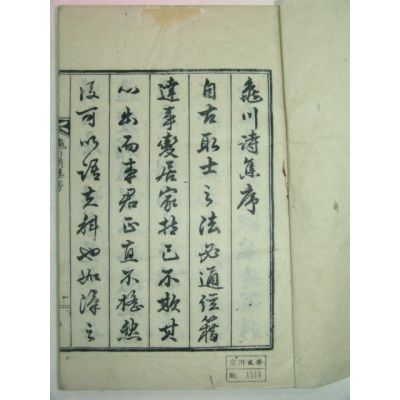 龜川詩集序
自古取士之法必通經籍
達事變居家持己不欺其
心出而事君正直不撓然
後可以語科也如之
龜川詩集序
川文庫
1514